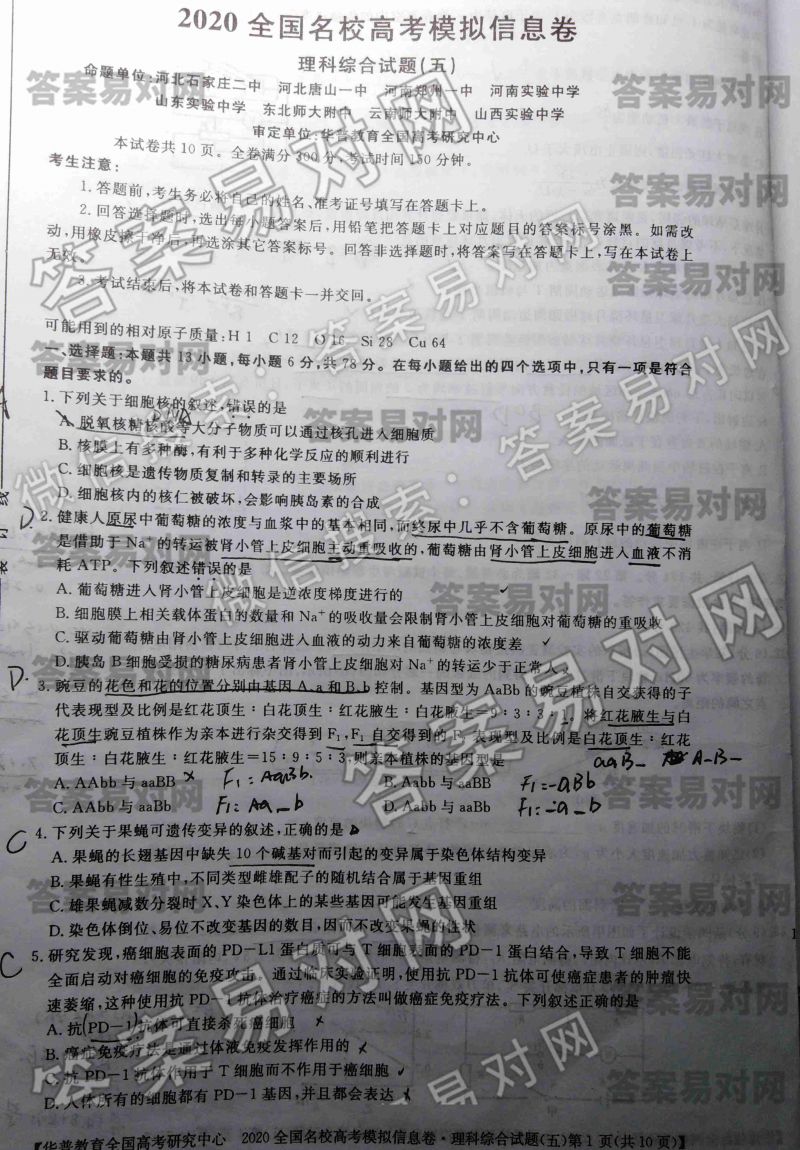 2020 全国名校高考模拟信息卷
理科综合试题(五)
命题单位:河北石家庄二中 河北唐山一中 河南郑州一中 河南实验中学
山东实验中学 东北师大附中 云南师大附中 山西实验中学
审定单位:华普教育全国高考研究中心
本试卷共 10 页。全卷满分 300 分,考试时间 150 分钟。
考生注意:
1. 答题前,考生务必将自己的姓名、准考证号填写在答题卡上。
2. 回答选择题时,选出每小题答案后,用铅笔把答题卡上对应题目的答案标号涂黑。如需改
动,用橡皮擦干净后,再选涂其它答案标号。回答非选择题时,将答案写在答题卡上,写在本试卷上
无效。
3. 考试结束后,将本试卷和答题卡一并交回。
可能用到的相对原子质量:H 1 C 12 O 16 Si 28 Cu 64
一、选择题:本题共 13 小题,每小题 6 分,共 78 分。在每小题给出的四个选项中,只有一项是符合
题目要求的。
1. 下列关于细胞核的叙述,错误的是
A. 脱氧核糖核酸等大分子物质可以通过核孔进入细胞质
B. 核膜上有多种酶,有利于多种化学反应的顺利进行
C. 细胞核是遗传物质复制和转录的主要场所
D. 细胞核内的核仁被破坏,会影响胰岛素的合成
D 2. 健康人原尿中葡萄糖的浓度与血浆中的基本相同,而终尿中几乎不含葡萄糖。原尿中的葡萄糖
是借助于 Na⁺ 的转运被肾小管上皮细胞主动重吸收的,葡萄糖由肾小管上皮细胞进入血液不消
耗 ATP。下列叙述错误的是
A. 葡萄糖进入肾小管上皮细胞是逆浓度梯度进行的 ✓
B. 细胞膜上相关载体蛋白的数量和 Na⁺ 的吸收量会限制肾小管上皮细胞对葡萄糖的重吸收
C. 驱动葡萄糖由肾小管上皮细胞进入血液的动力来自葡萄糖的浓度差 ✓
D. 胰岛 B 细胞受损的糖尿病患者肾小管上皮细胞对 Na⁺ 的转运少于正常人
D. 3. 豌豆的花色和花的位置分别由基因 A、a 和 B、b 控制。基因型为 AaBb 的豌豆植株自交获得的子
代表现型及比例是红花顶生:白花顶生:红花腋生:白花腋生=9:3:3:1。将红花腋生与白
花顶生豌豆植株作为亲本进行杂交得到 F₁,F₁ 自交得到的 F₂ 表现型及比例是白花顶生:红花
顶生:白花腋生:红花腋生=15:9:5:3,则亲本植株的基因型是 aaB_ A-B-
A. AAbb 与 aaBB × F₁: AaBb. B. Aabb 与 aaBB F₁=-aBb
C. AAbb 与 aaBb F₁: Aa_b D. Aabb 与 aaBb F₁: -a_b
C 4. 下列关于果蝇可遗传变异的叙述,正确的是
A. 果蝇的长翅基因中缺失 10 个碱基对而引起的变异属于染色体结构变异
B. 果蝇有性生殖中,不同类型雌雄配子的随机结合属于基因重组
C. 雄果蝇减数分裂时 X、Y 染色体上的某些基因可能发生基因重组
D. 染色体倒位、易位不改变基因的数目,因而不改变果蝇的性状
C 5. 研究发现,癌细胞表面的 PD-L1 蛋白质可与 T 细胞表面的 PD-1 蛋白结合,导致 T 细胞不能
全面启动对癌细胞的免疫攻击。通过临床实验证明,使用抗 PD-1 抗体可使癌症患者的肿瘤快
速萎缩,这种使用抗 PD-1 抗体治疗癌症的方法叫做癌症免疫疗法。下列叙述正确的是
A. 抗(PD-1)抗体可直接杀死癌细胞 ×
B. 癌症免疫疗法是通过体液免疫发挥作用的 ×
C. 抗 PD-1 抗体作用于 T 细胞而不作用于癌细胞
D. 人体所有的细胞都有 PD-1 基因,并且都会表达 ×
【华普教育全国高考研究中心 2020 全国名校高考模拟信息卷·理科综合试题(五)第 1 页(共 10 页)】
答案易对网
微信搜索:答案易对网